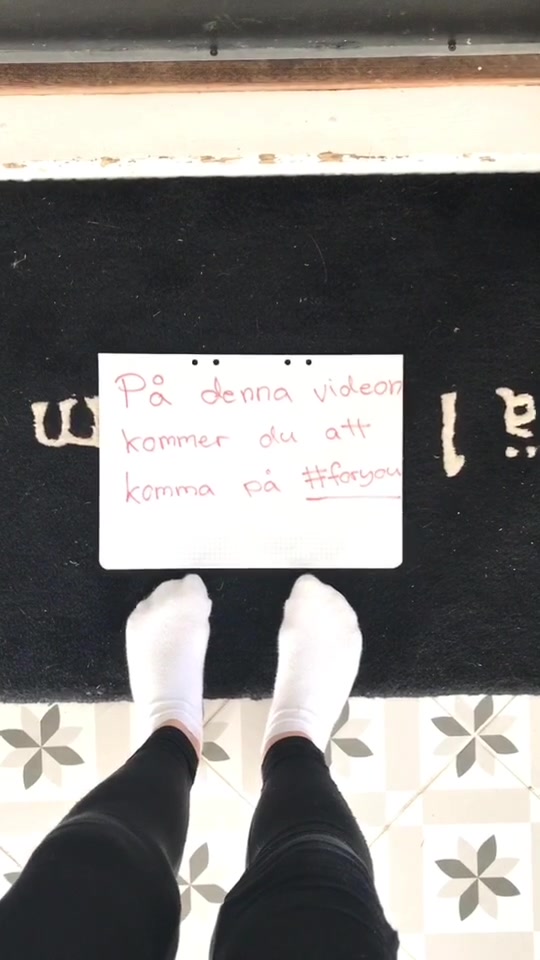 På denna videon
kommer du att
komma på #foryou